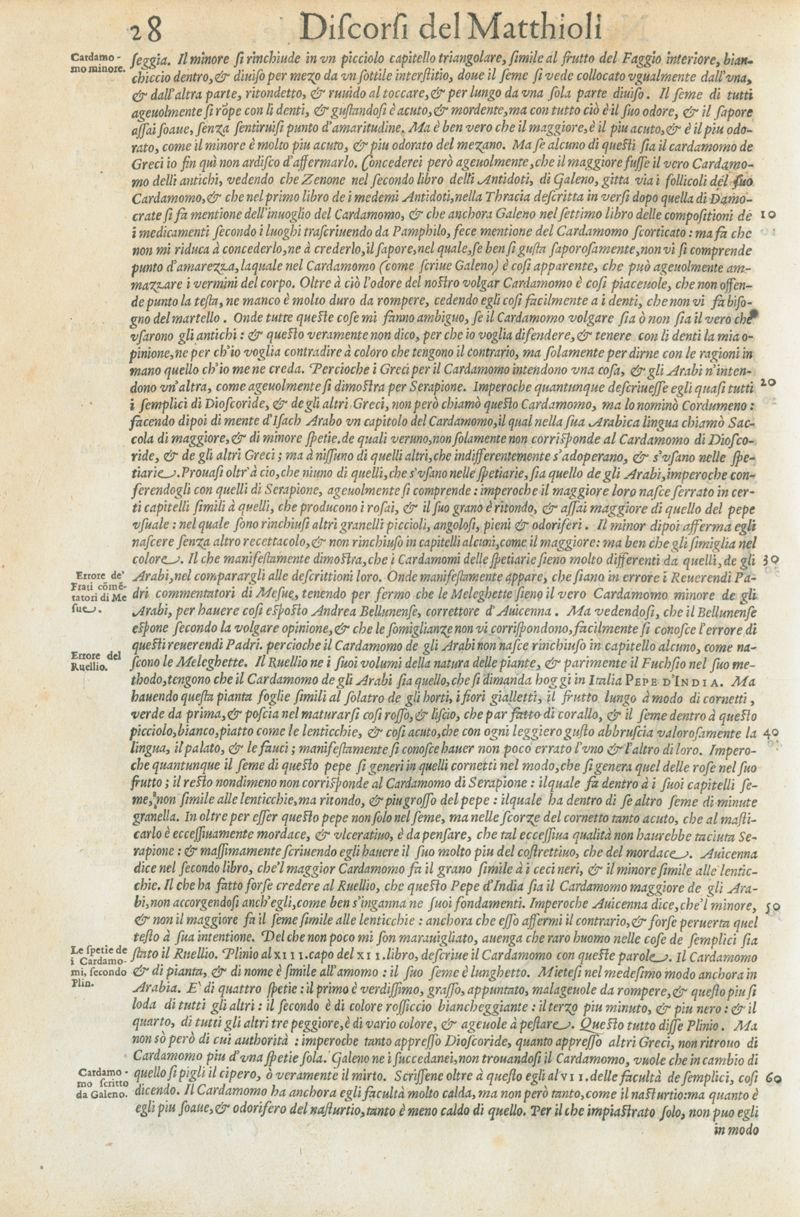 28 Discorsi del Matthioli
Cardamo-
mo minore.
seggia. Il minore si rinchiude in vn picciolo capitello triangolare, simile al frutto del Faggio interiore, bian-
chiccio dentro, & diuiso per mezo da vn sottile interstitio, doue il seme si vede collocato vgualmente dall'vna,
& dall'altra parte, ritondetto, & ruuido al toccare, & per lungo da vna sola parte diuiso. Il seme di tutti
ageuolmente si rōpe con li denti, & gustandosi è acuto, & mordente, ma con tutto ciò è il suo odore, & il sapore
assai soaue, senza sentiruisi punto d'amaritudine. Ma è ben vero che il maggiore, è il piu acuto, & è il piu odo-
rato, come il minore è molto piu acuto, & piu odorato del mezano. Ma se alcuno di questi sia il cardamomo de
Greci io fin quà non ardisco d'affermarlo. Concederei però ageuolmente, che il maggiore fusse il vero Cardamo-
mo delli antichi, vedendo che Zenone nel secondo libro delli Antidoti, di Galeno, gitta via i follicoli del suo
Cardamomo, & che nel primo libro de i medemi Antidoti, nella Thracia descritta in versi dopo quella di Damo-
crate si fa mentione dell'inuoglio del Cardamomo, & che anchora Galeno nel settimo libro delle compositioni de 10
i medicamenti secondo i luoghi trascriuendo da Pamphilo, fece mentione del Cardamomo scorticato: ma fa che
non mi riduca à concederlo, ne à crederlo, il sapore, nel quale, se ben si gusta saporosamente, non vi si comprende
punto d'amarezza, laquale nel Cardamomo (come scriue Galeno) è cosi apparente, che può ageuolmente am-
mazzare i vermini del corpo. Oltre à ciò l'odore del nostro volgar Cardamomo è cosi piaceuole, che non offen-
de punto la testa, ne manco è molto duro da rompere, cedendo egli cosi facilmente a i denti, che non vi fà biso-
gno del martello. Onde tutte queste cose mi fanno ambiguo, se il Cardamomo volgare sia ò non sia il vero che
vsarono gli antichi: & questo veramente non dico, per che io voglia difendere, & tenere con li denti la mia o-
pinione, ne per ch'io voglia contradire à coloro che tengono il contrario, ma solamente per dirne con le ragioni in
mano quello ch'io me ne creda. Percioche i Greci per il Cardamomo intendono vna cosa, & gli Arabi n'inten-
dono vn'altra, come ageuolmente si dimostra per Serapione. Imperoche quantunque descriuesse egli quasi tutti 20
i semplici di Dioscoride, & de gli altri Greci, non però chiamò questo Cardamomo, ma lo nominò Cordumeno:
facendo dipoi di mente d'Isach Arabo vn capitolo del Cardamomo, il qual nella sua Arabica lingua chiamò Sac-
cola di maggiore, & di minore spetie. de quali veruno, non solamente non corrisponde al Cardamomo di Diosco-
ride, & de gli altri Greci; ma à nissuno di quelli altri, che indifferentemente s'adoperano, & s'vsano nelle spe-
tiarie. Prouasi oltr'à cio, che niuno di quelli, che s'vsano nelle spetiarie, sia quello de gli Arabi, imperoche con-
ferendogli con quelli di Serapione, ageuolmente si comprende: imperoche il maggiore loro nasce serrato in cer-
ti capitelli simili à quelli, che producono i rosai, & il suo grano è ritondo, & assai maggiore di quello del pepe
vsuale: nel quale sono rinchiusi altri granelli piccioli, angolosi, pieni & odoriferi. Il minor dipoi afferma egli
nascere senza altro recettacolo, & non rinchiuso in capitelli alcuni, come il maggiore: ma ben che gli simiglia nel
colore. Il che manifestamente dimostra, che i Cardamomi delle spetiarie sieno molto differenti da quelli, de gli 30
Errore de'
Frati cōmē-
tatori di Me
sue.
Arabi, nel comparargli alle descrittioni loro. Onde manifestamente appare, che siano in errore i Reuerendi Pa-
dri commentatori di Mesue, tenendo per fermo che le Meleghette sieno il vero Cardamomo minore de gli
Arabi, per hauere cosi esposto Andrea Bellunense, correttore d'Auicenna. Ma vedendosi, che il Bellunense
espone secondo la volgare opinione, & che le somiglianze non vi corrispondono, facilmente si conosce l'errore di
questi reuerendi Padri. percioche il Cardamomo de gli Arabi non nasce rinchiuso in capitello alcuno, come na-
Errore del
Ruellio.
scono le Meleghette. Il Ruellio ne i suoi volumi della natura delle piante, & parimente il Fuchsio nel suo me-
thodo, tengono che il Cardamomo de gli Arabi sia quello, che si dimanda hoggi in Italia PEPE D'INDIA. Ma
hauendo questa pianta foglie simili al solatro de gli horti, i fiori gialletti, il frutto lungo à modo di cornetti,
verde da prima, & poscia nel maturarsi cosi rosso, & liscio, che par fatto di corallo, & il seme dentro à questo
picciolo, bianco, piatto come le lenticchie, & cosi acuto, che con ogni leggiero gusto abbruscia valorosamente la 40
lingua, il palato, & le fauci; manifestamente si conosce hauer non poco errato l'vno & l'altro di loro. Impero-
che quantunque il seme di questo pepe si generi in quelli cornetti nel modo, che si genera quel delle rose nel suo
frutto; il resto nondimeno non corrisponde al Cardamomo di Serapione: ilquale fà dentro à i suoi capitelli se-
me, non simile alle lenticchie, ma ritondo, & piu grosso del pepe: ilquale ha dentro di se altro seme di minute
granella. In oltre per esser questo pepe non solo nel seme, ma nelle scorze del cornetto tanto acuto, che al masti-
carlo è eccessiuamente mordace, & vlceratiuo, è da pensare, che tal eccessiua qualità non haurebbe taciuta Se-
rapione: & massimamente scriuendo egli hauere il suo molto piu del costrettiuo, che del mordace. Auicenna
dice nel secondo libro, che'l maggior Cardamomo fà il grano simile à i ceci neri, & il minore simile alle lentic-
chie. Il che ha fatto forse credere al Ruellio, che questo Pepe d'India sia il Cardamomo maggiore de gli Ara-
bi, non accorgendosi anch'egli, come ben s'inganna ne suoi fondamenti. Imperoche Auicenna dice, che'l minore, 50
& non il maggiore fà il seme simile alle lenticchie: anchora che esso affermi il contrario, & forse peruerta quel
testo à sua intentione. Del che non poco mi son marauigliato, auenga che raro huomo nelle cose de semplici sia
Le spetie de
i Cardamo-
mi, secondo
Plin.
stato il Ruellio. Plinio al XIII. capo del XII. libro, descriue il Cardamomo con queste parole. Il Cardamomo
& di pianta, & di nome è simile all'amomo: il suo seme è lunghetto. Mietesi nel medesimo modo anchora in
Arabia. E' di quattro spetie: il primo è verdissimo, grasso, appuntato, malageuole da rompere, & questo piu si
loda di tutti gli altri: il secondo è di colore rossiccio biancheggiante: il terzo piu minuto, & piu nero: & il
quarto, di tutti gli altri tre peggiore, è di vario colore, & ageuole à pestare. Questo tutto disse Plinio. Ma
non sò però di cui authorità: imperoche tanto appresso Dioscoride, quanto appresso altri Greci, non ritrouo di
Cardamomo piu d'vna spetie sola. Galeno ne i succedanei, non trouandosi il Cardamomo, vuole che in cambio di
Cardamo-
mo scritto
da Galeno.
quello si pigli il cipero, ò veramente il mirto. Scrissene oltre à questo egli al VII. delle facultà de semplici, cosi 60
dicendo. Il Cardamomo ha anchora egli facultà molto calda, ma non però tanto, come il nasturtio: ma quanto è
egli piu soaue, & odorifero del nasturtio, tanto è meno caldo di quello. Per il che impiastrato solo, non puo egli
in modo